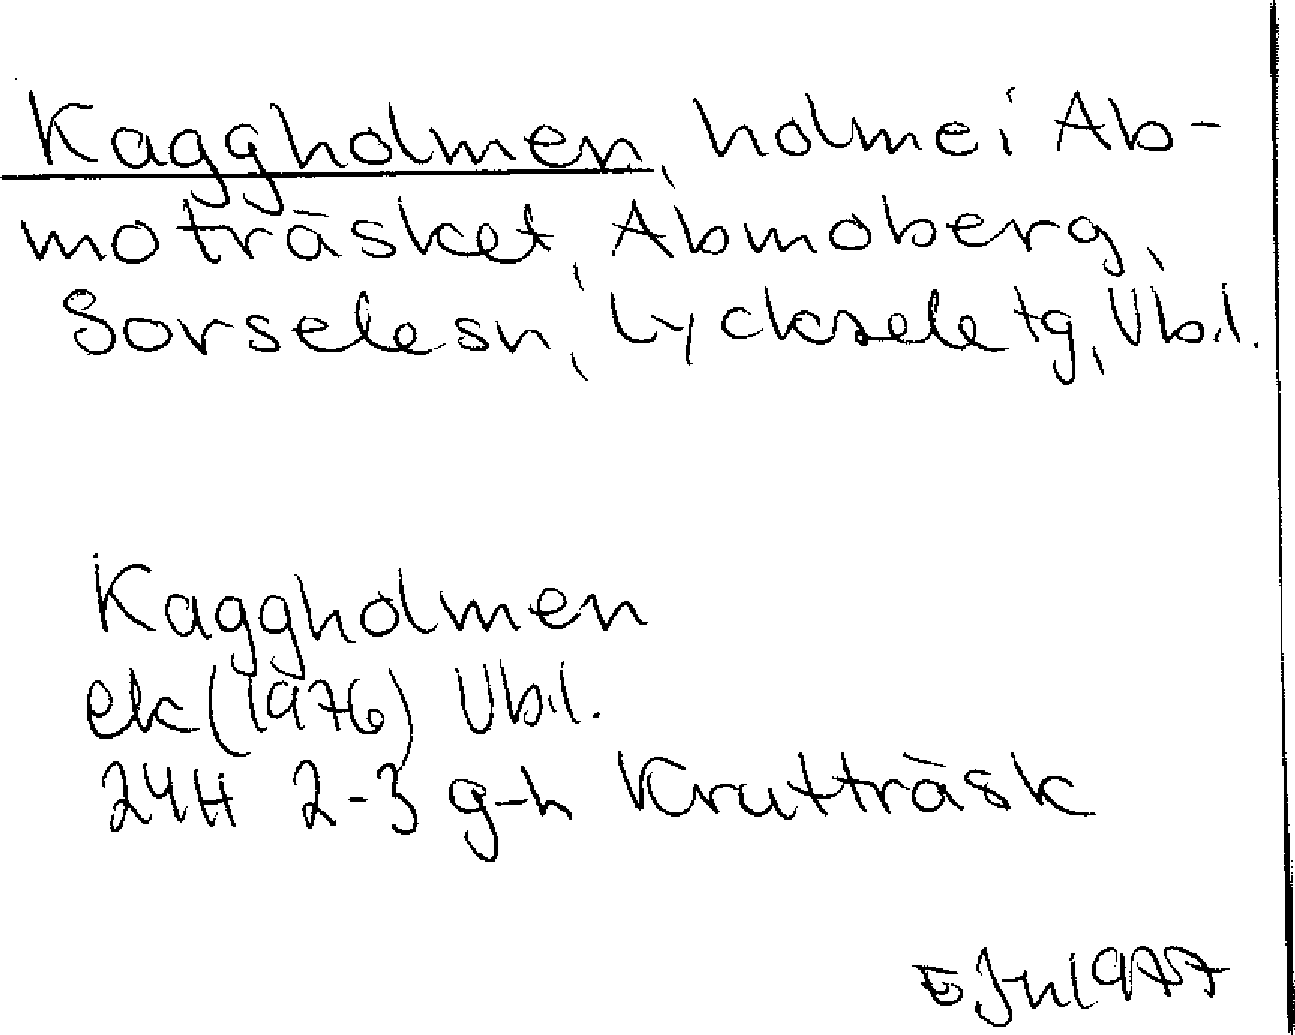 Kaggholmen, holme i Ab-
moträsket, Abmoberg,
Sorsele sn, Lycksele tg, Vb.l.
Kaggholmen
ek (1976) Vb.l.
24H 2-3 g-h Krutträsk
1977